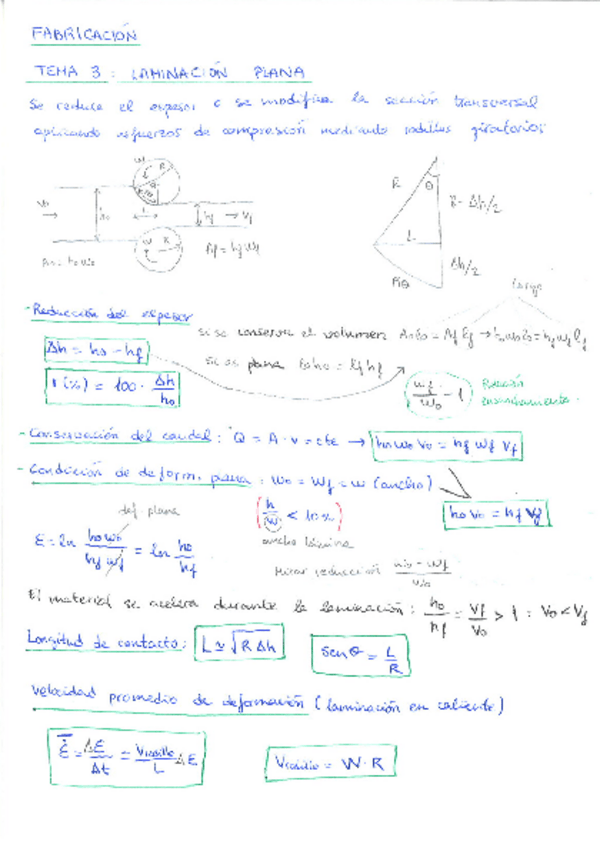 FABRICACIÓN
TEMA 3 : LAMINACIÓN PLANA
Se reduce el espesor o se modifica la sección transversal
aplicando esfuerzos de compresión mediante rodillos giratorios
w R
v₀ → h₀ L hf → vf
w R
A₀ = h₀w₀ Af = hf wf
R θ R - Δh/2
L
Δh/2
Rθ
largo
- Reducción del espesor
si se conserva el volumen A₀ℓ₀ = Af ℓf → h₀w₀ℓ₀ = hf wf ℓf
Δh = h₀ - hf
si es plana ℓ₀h₀ = ℓf hf
r (%) = 100 · Δh/h₀
wf/w₀ - 1 ensanchamiento
- Conservación del caudal : Q = A · v = cte → h₀w₀v₀ = hf wf vf
- Condición de deform. plana : w₀ = wf = w (ancho)
h₀v₀ = hf vf
def. plana
(h/w < 10%)
ancho lámina
ε = ln h₀w₀/hf wf = ln h₀/hf
Mirar reducción w₀ - wf/w₀
El material se acelera durante la laminación : h₀/hf = vf/v₀ > 1 : v₀ < vf
Longitud de contacto : L ≃ √R Δh
sen θ = L/R
Velocidad promedio de deformación (laminación en caliente)
ε̇ = Δε/Δt = Vrodillo/L Δε
Vrodillo = W · R